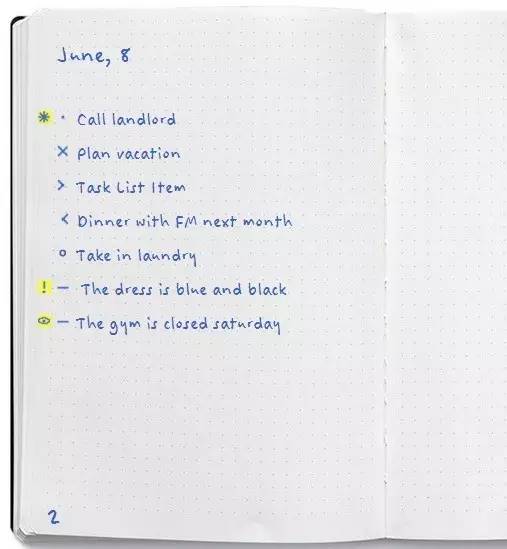 June, 8
* · Call landlord
× Plan vacation
> Task List Item
< Dinner with FM next month
o Take in laundry
! – The dress is blue and black
– The gym is closed saturday
2